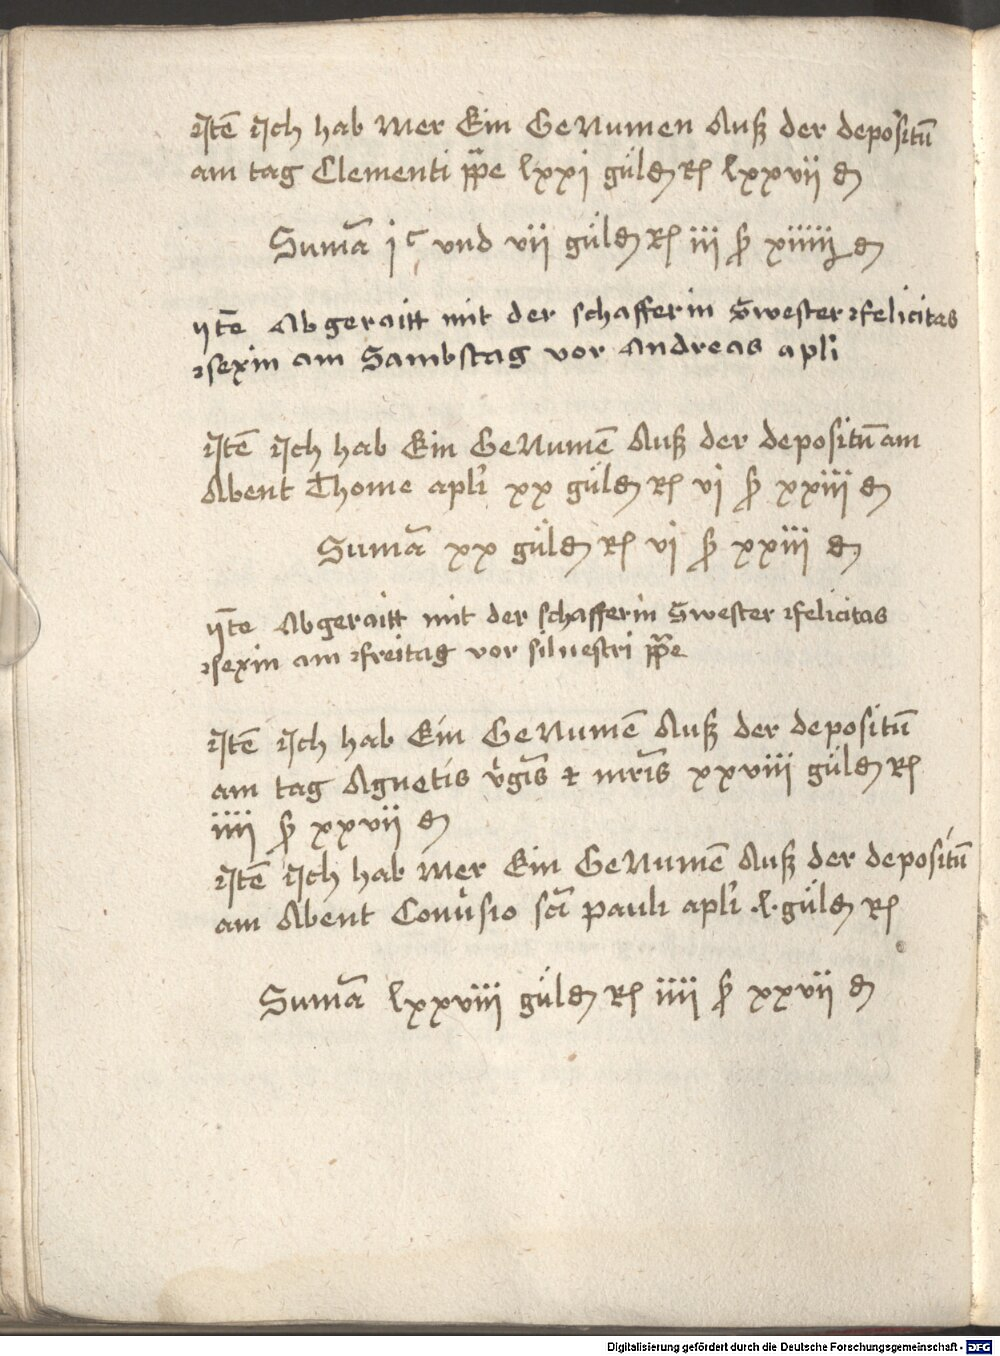 Itē Ich hab Mer Ein GeNumen Auß der depositū
am tag Clementi pp̄e lxxi gülden Rh lxxvii d
Sumā i c vnd vii gülden Rh iii ß xiiiij d
yte Abgeraitt mit der schafferin Swester felicitas
sexin am Sambstag vor Andreas apl'i
Itē Ich hab Ein GeNumē Auß der depositū am
Abent Thome apl'i xx gülden Rh vi ß xxiii d
Sumā xx gülden Rh vi ß xxiii d
yte Abgeraitt mit der schafferin Swester felicitas
sexin am freitag vor siluestri pp̄e
Itē Ich hab Ein GeNumē Auß der depositū
am tag Agnetis v'gīs & mr̄is xxviii gülden Rh
iiii ß xxvii d
Itē Ich hab Mer Ein GeNumē Auß der depositū
am Abent Conu'sio sc̄i pauli apl'i .l. gülden Rh
Sumā lxxviii gülden Rh iiii ß xxvii d
Digitalisierung gefördert durch die Deutsche Forschungsgemeinschaft - DFG